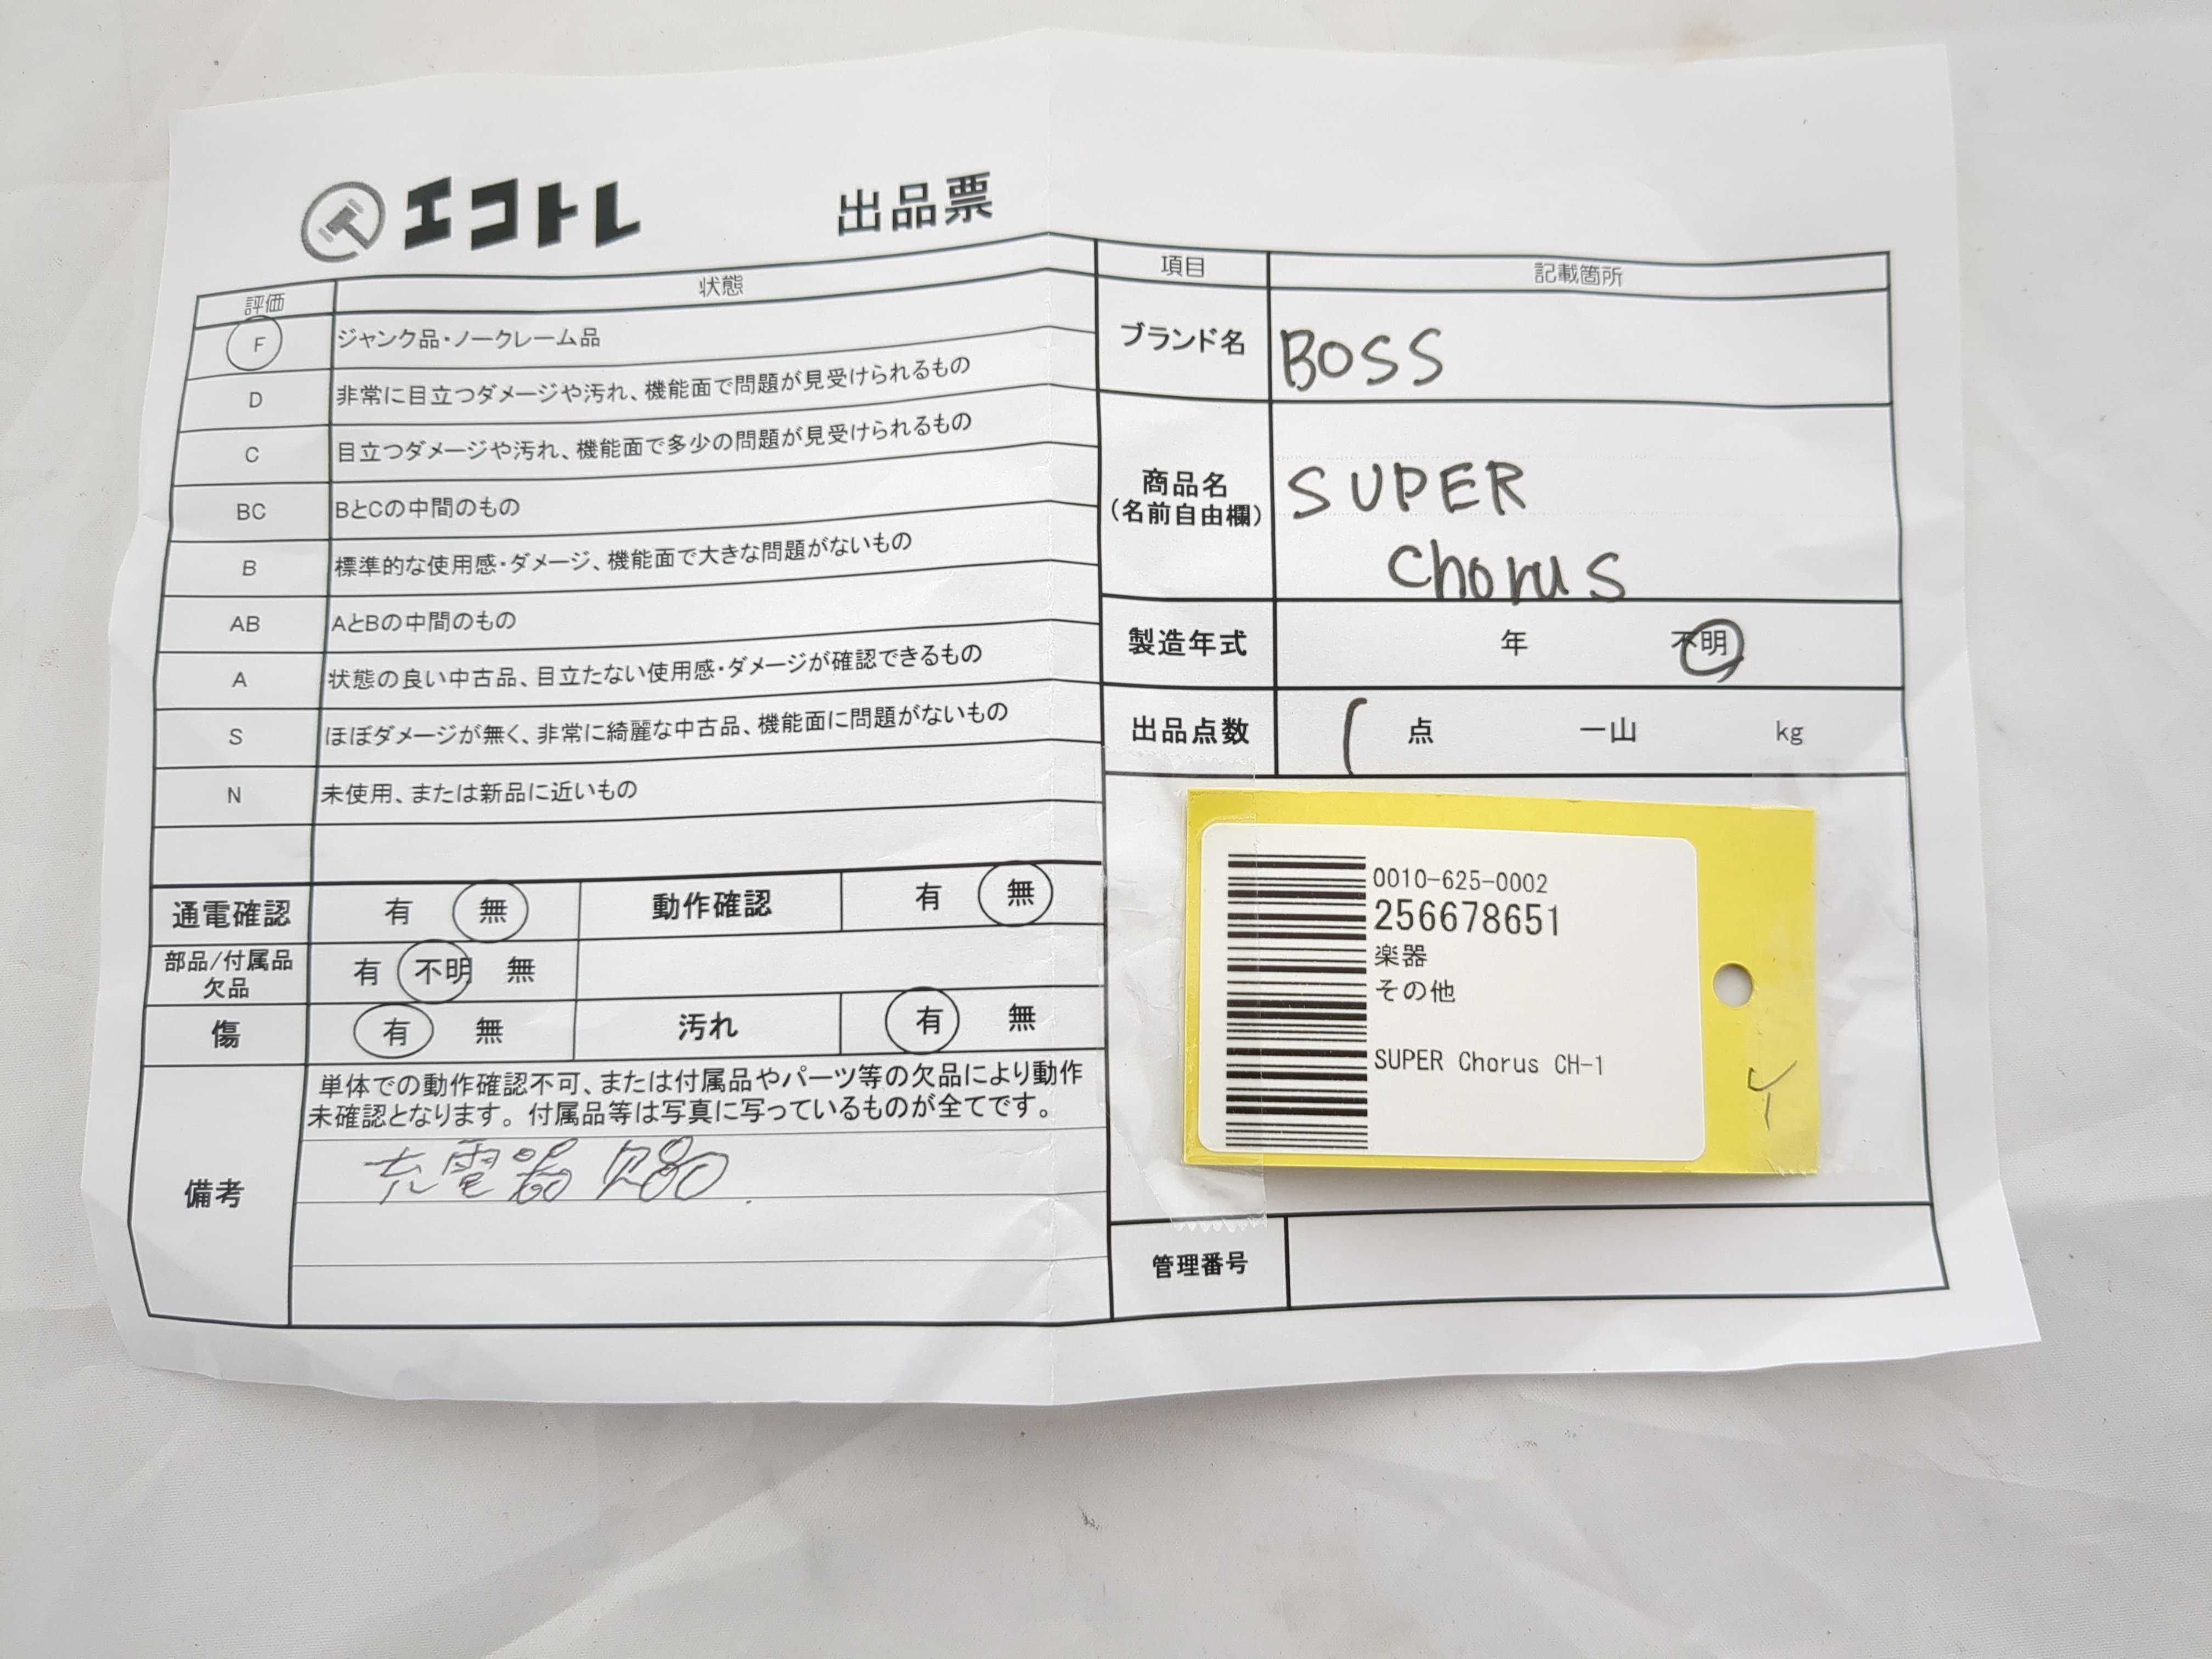 エコトレ
出品票
評価 状態
F ジャンク品・ノークレーム品
D 非常に目立つダメージや汚れ、機能面で問題が見受けられるもの
C 目立つダメージや汚れ、機能面で多少の問題が見受けられるもの
BC BとCの中間のもの
B 標準的な使用感・ダメージ、機能面で大きな問題がないもの
AB AとBの中間のもの
A 状態の良い中古品、目立たない使用感・ダメージが確認できるもの
S ほぼダメージが無く、非常に綺麗な中古品、機能面に問題がないもの
N 未使用、または新品に近いもの
通電確認 有 無 動作確認 有 無
部品/付属品
欠品
有 不明 無
傷 有 無 汚れ 有 無
備考
単体での動作確認不可、または付属品やパーツ等の欠品により動作
未確認となります。付属品等は写真に写っているものが全てです。
充電器 欠品.
項目 記載箇所
ブランド名 BOSS
商品名
(名前自由欄)
SUPER
Chorus
製造年式 年 不明
出品点数 1 点 一山 kg
0010-625-0002
256678651
楽器
その他
SUPER Chorus CH-1
管理番号